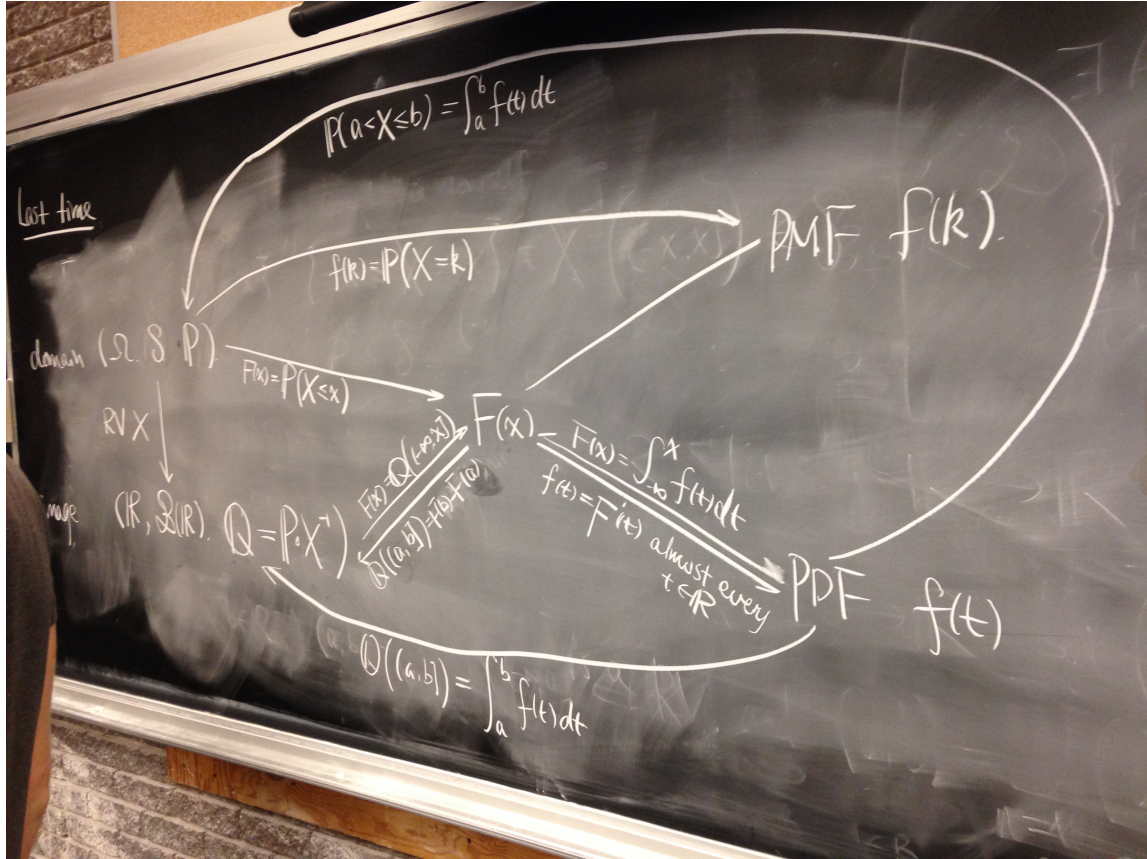 P(a<X≤b) = ∫_a^b f(t) dt
Last time
PMF f(k).
f(k) = P(X=k)
domain (Ω, S, P).
F(x) = P(X≤x)
RV X
F(x)
F(x) = Q((-∞, x])
Q((a,b]) = F(b)-F(a)
F(x) = ∫_{-∞}^x f(t) dt
f(t) = F'(t) almost every
t∈ℝ
mage (ℝ, B(ℝ). Q = P∘X⁻¹)
PDF f(t)
Q((a,b]) = ∫_a^b f(t) dt